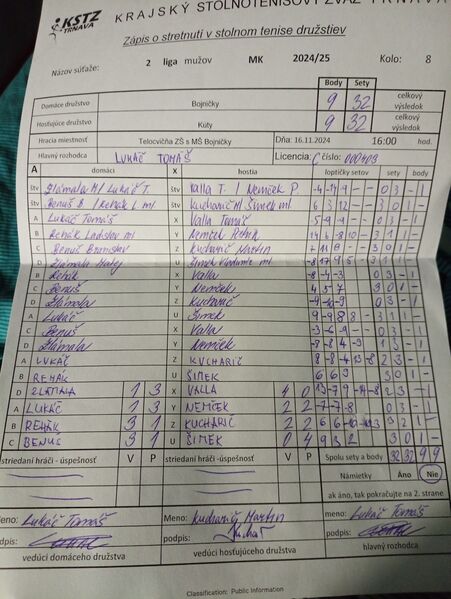 KSTZ TRNAVA KRAJSKÝ STOLNOTENISOVÝ ZVÄZ TRNAVA
Zápis o stretnutí v stolnom tenise družstiev
Názov súťaže: 2 liga mužov MK 2024/25 Kolo: 8
Body Sety
Domáce družstvo Bojničky 9 32 celkový výsledok
Hosťujúce družstvo Kúty 9 32 celkový výsledok
Hracia miestnosť Telocvičňa ZŠ s MŠ Bojničky Dňa: 16.11.2024 16:00 hod.
Hlavný rozhodca LUKÁČ TOMÁŠ Licencia: C číslo: 000403
A domáci x hostia loptičky setov sety body
štv Zlámala M / Lukáč T. štv Valla T. / Nemček P. 0 3 - 1
štv Benuš B / Rehák L ml. štv Kucharič M / Šimek ml. 6 3 12 - - 3 0 1 -
A Lukáč Tomáš X Valla Tomáš 5 - 9 - -
B Rehák Ladislav ml Y Nemček Patrik 3 1 1 -
C Benuš Branislav Z Kucharič Martin 3 0 1 -
D Zlámala Matej U Šimek Vladimír ml
B Rehák X Valla -8 -4 -3 0 3 - 1
C Benuš Y Nemček 4 5 7 3 0 1 -
D Zlámala Z Kucharič 0 3 - 1
A Lukáč U Šimek 3 1 1 -
C Benuš X Valla -3 -6 -9 - - 0 3 - 1
D Zlámala Y Nemček
A LUKÁČ Z KUCHARIČ 2 3 - 1
B REHÁK U ŠIMEK 6 6 9 3 0 1 -
D ZLÁMALA 1 3 X VALLA 4 0 2 3 - 1
A LUKÁČ 2 2 Y NEMČEK 2 2 -7 -7 -8 0 3 - 1
B REHÁK 3 1 Z KUCHARIČ 2 2 3 2 1 -
C BENUŠ 3 1 U ŠIMEK 0 4 9 3 2 3 0 1 -
striedaní hráči - úspešnosť V P striedaní hráči - úspešnosť V P Spolu sety a body 32 32 9 9
Námietky Áno Nie
ak áno, tak pokračujte na 2. strane
Meno: Lukáč Tomáš Meno: Kucharič Martin meno: Lukáč Tomáš
podpis: podpis: podpis:
vedúci domáceho družstva vedúci hosťujúceho družstva hlavný rozhodca
Classification: Public Information